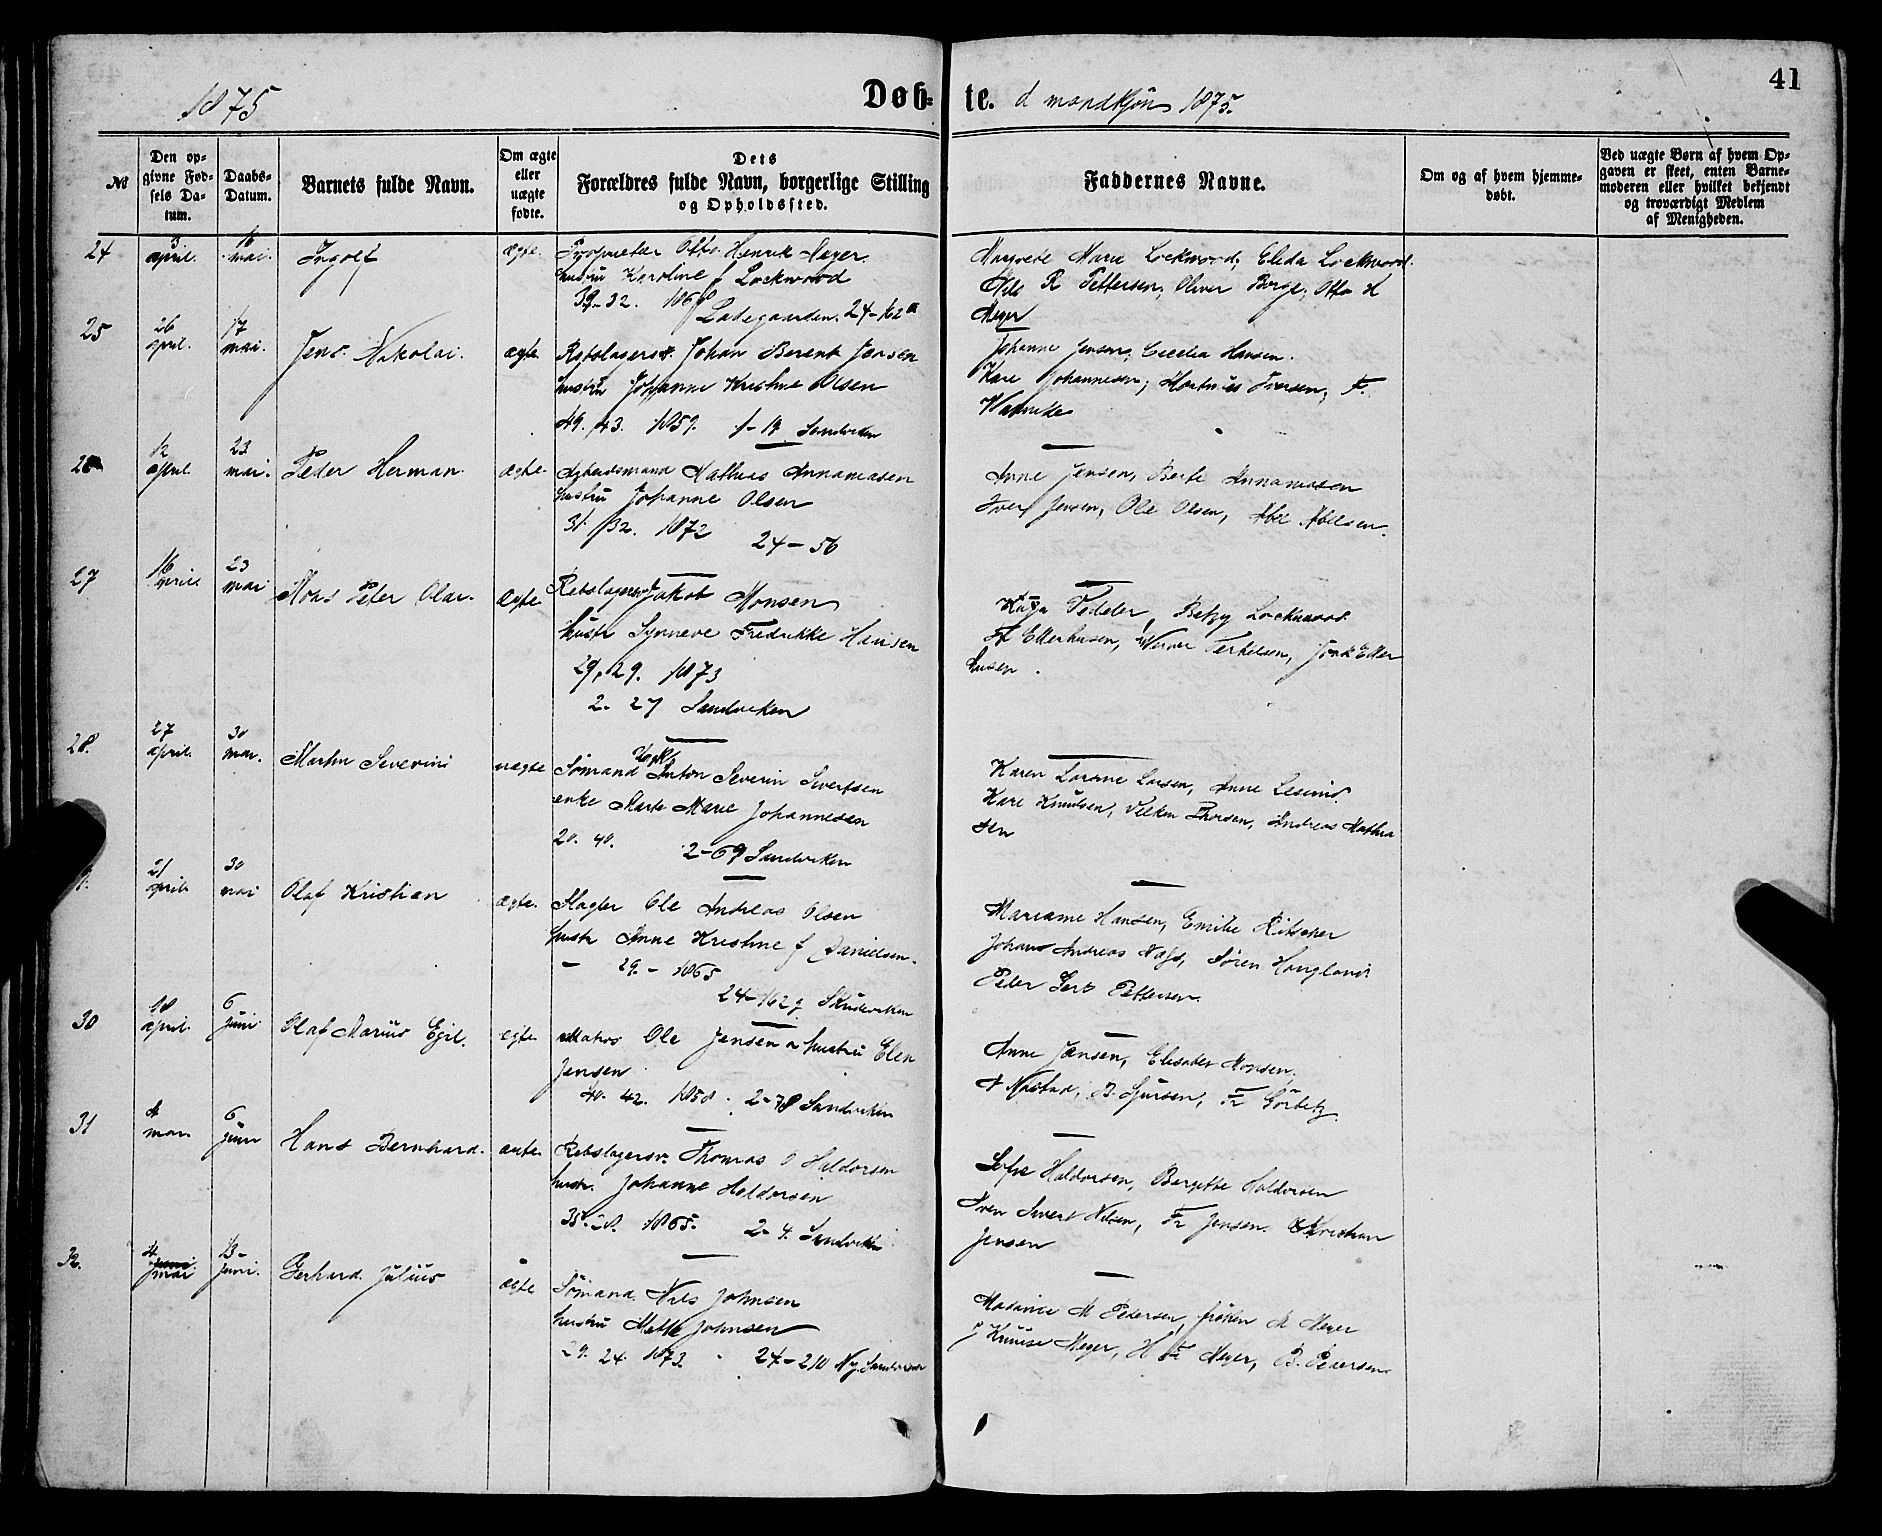 41
1875
Døb-
te. d mandkjøn 1875.
No
Den op-
givne Fød-
sels Da-
tum.
Daabs-
Datum.
Barnets fulde Navn.
Om ægte
eller
uægte
fødte.
Dets
Forældres fulde Navn, borgerlige Stilling
og Opholdssted.
Faddernes Navne.
Om og af hvem hjemme-
døbt.
Ved uægte Børn af hvem Op-
gaven er skeet, enten Barne-
moderen eller hvilket bekjendt
og troværdigt Medlem
af Menigheden.
24
3
april.
16
mai.
Ingolf
ægte
Otto Henrik Mayer.
hustru Karoline f Lockwood
39-32. 1868
Ladegaarden. 24-162a
Margrete Marie Lockwood, Elida Lockwood.
Nils R Pettersen, Oliver Borge, Otto H
Meyer
25
26
april.
17
mai.
Jens Nikolai.
ægte
Rebslagersv. Johan Berent Jensen
hustru Johanne Kristine Olsen
49. 43. 1859. 1-19 Sandviken
Johanne Jensen, Cecelia Hansen.
Kare Johannesen, Iversen, F.
Warncke
12
april.
23
mai.
Peder Herman.
ægte
Arbeidsmand Mathias Annamasen
hustru Johanne Olsen
31. 32. 1872
24-56
Anne Jensen, Berte Annamasen
Iver Jensen, Ole Olsen, Abel Abelsen.
27
16
april
23
mai
Peter Olai.
ægte
Rebslagersv Jakob Monsen
hustr Synneve Fredrikke Hansen
29, 29. 1873
2. 27 Sandviken
Kaja Fedder, Betzy Lockwood
Etterhusen, Werner Terkelsen, Etter
husen.
28.
27
april.
30
mai.
Martin Severin
uægte
Sømand Anton Severin Sivertsen
enke Marte Marie Johannesen
28. 40. 2-69 Sandviken
Karen Larsen, Anne
Kare Knudsen, Thorsen, Andreas Mathia
sen
21
april
30
mai
Olaf Kristian
ægte.
Slagter Ole Andreas Olsen
hustr Anne Kristine f Danielsen.
- 29. - 1865
24-162g. Skudeviken
Marianne Hansen, Emilie Ritscher
Johan Andreas Søren Hougland
Peter Gert Pettersen
30
18
april.
6
juni.
Olaf Marius Egil.
ægte
Matros Ole Jensen a hustru Elen
Jensen
40. 42. 1858. 2-78 Sandviken
Anne Jansen, Elisabet Monsen.
B. Sjursen, Fr Görbitz
31
mai.
6
juni
Hans Bernhard.
ægte.
Rebslagersv. Thomas O Haldorsen
hustr. Johanne Haldorsen
35. 1865. 2-4. Sandviken
Sofie Haldorsen, Bergitte Haldorsen
Sivert Nilsen, Fr Jensen. Christian
Jensen
32.
4
mai
13
juni.
Gerhard Julius
ægte
Sømand Nils Johnsen
hustru Mette Johnsen
29. 24. 1873. 24-210 Ny. Sandviken
Madame M Pedersen, frøken M Meyer
Meyer, H Fr Meyer, B. Pedersen